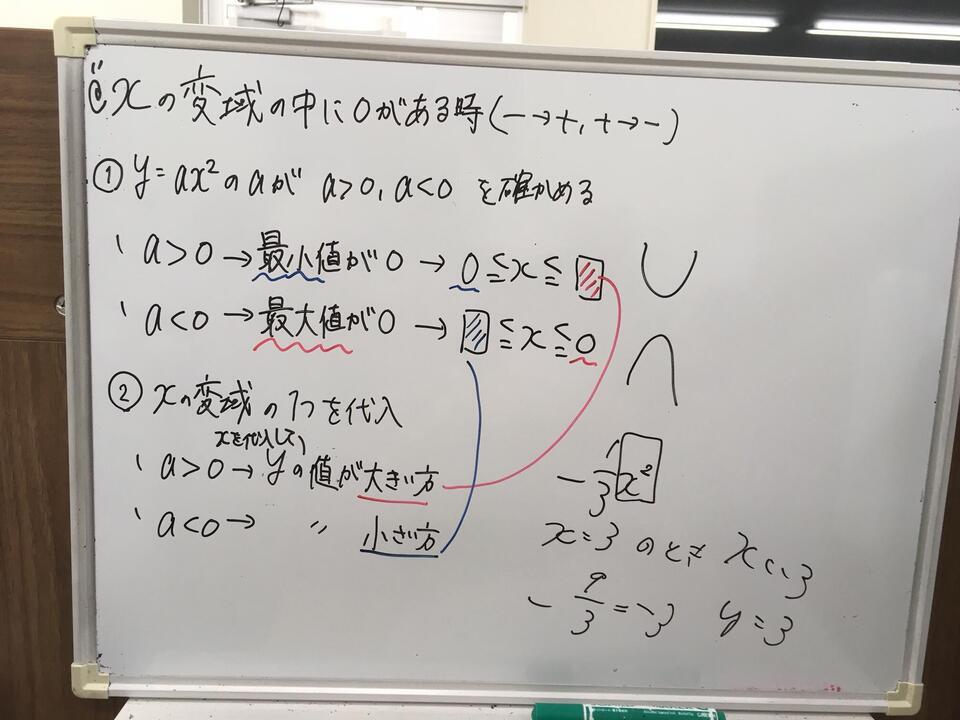 xの変域の中に0がある時(-→+, +→-)
① y=ax²のaが a>0, a<0 を確かめる
、a>0→最小値が0→ 0≦x≦
、a<0→最大値が0→ ≦x≦0
② xの変域の1つを代入
xを代入して、
、a>0→yの値が大きい方
、a<0→ 〃 小さい方
-1/3x²
x=3 のとき
-9/3=-3
y=3